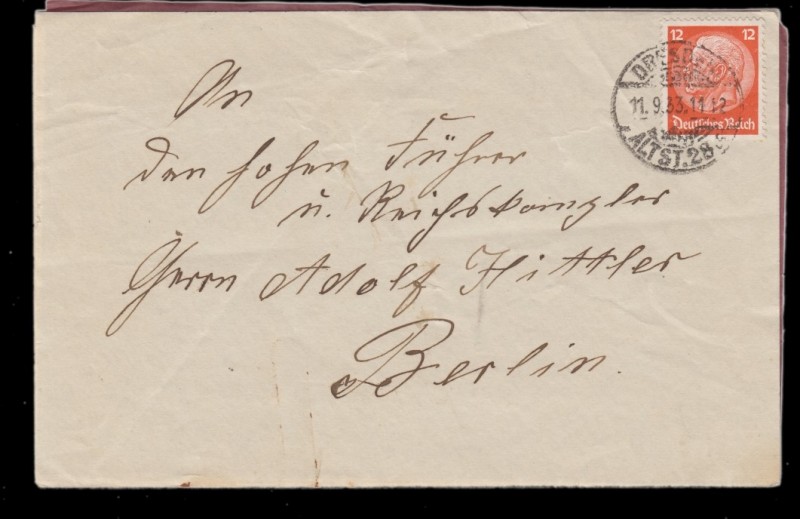 12 12
Deutsches Reich
DRESDEN
11.9.33.11-12
ALTST. 28
An
den hohen Führer
u. Reichskanzler
Herrn Adolf Hittler
Berlin.